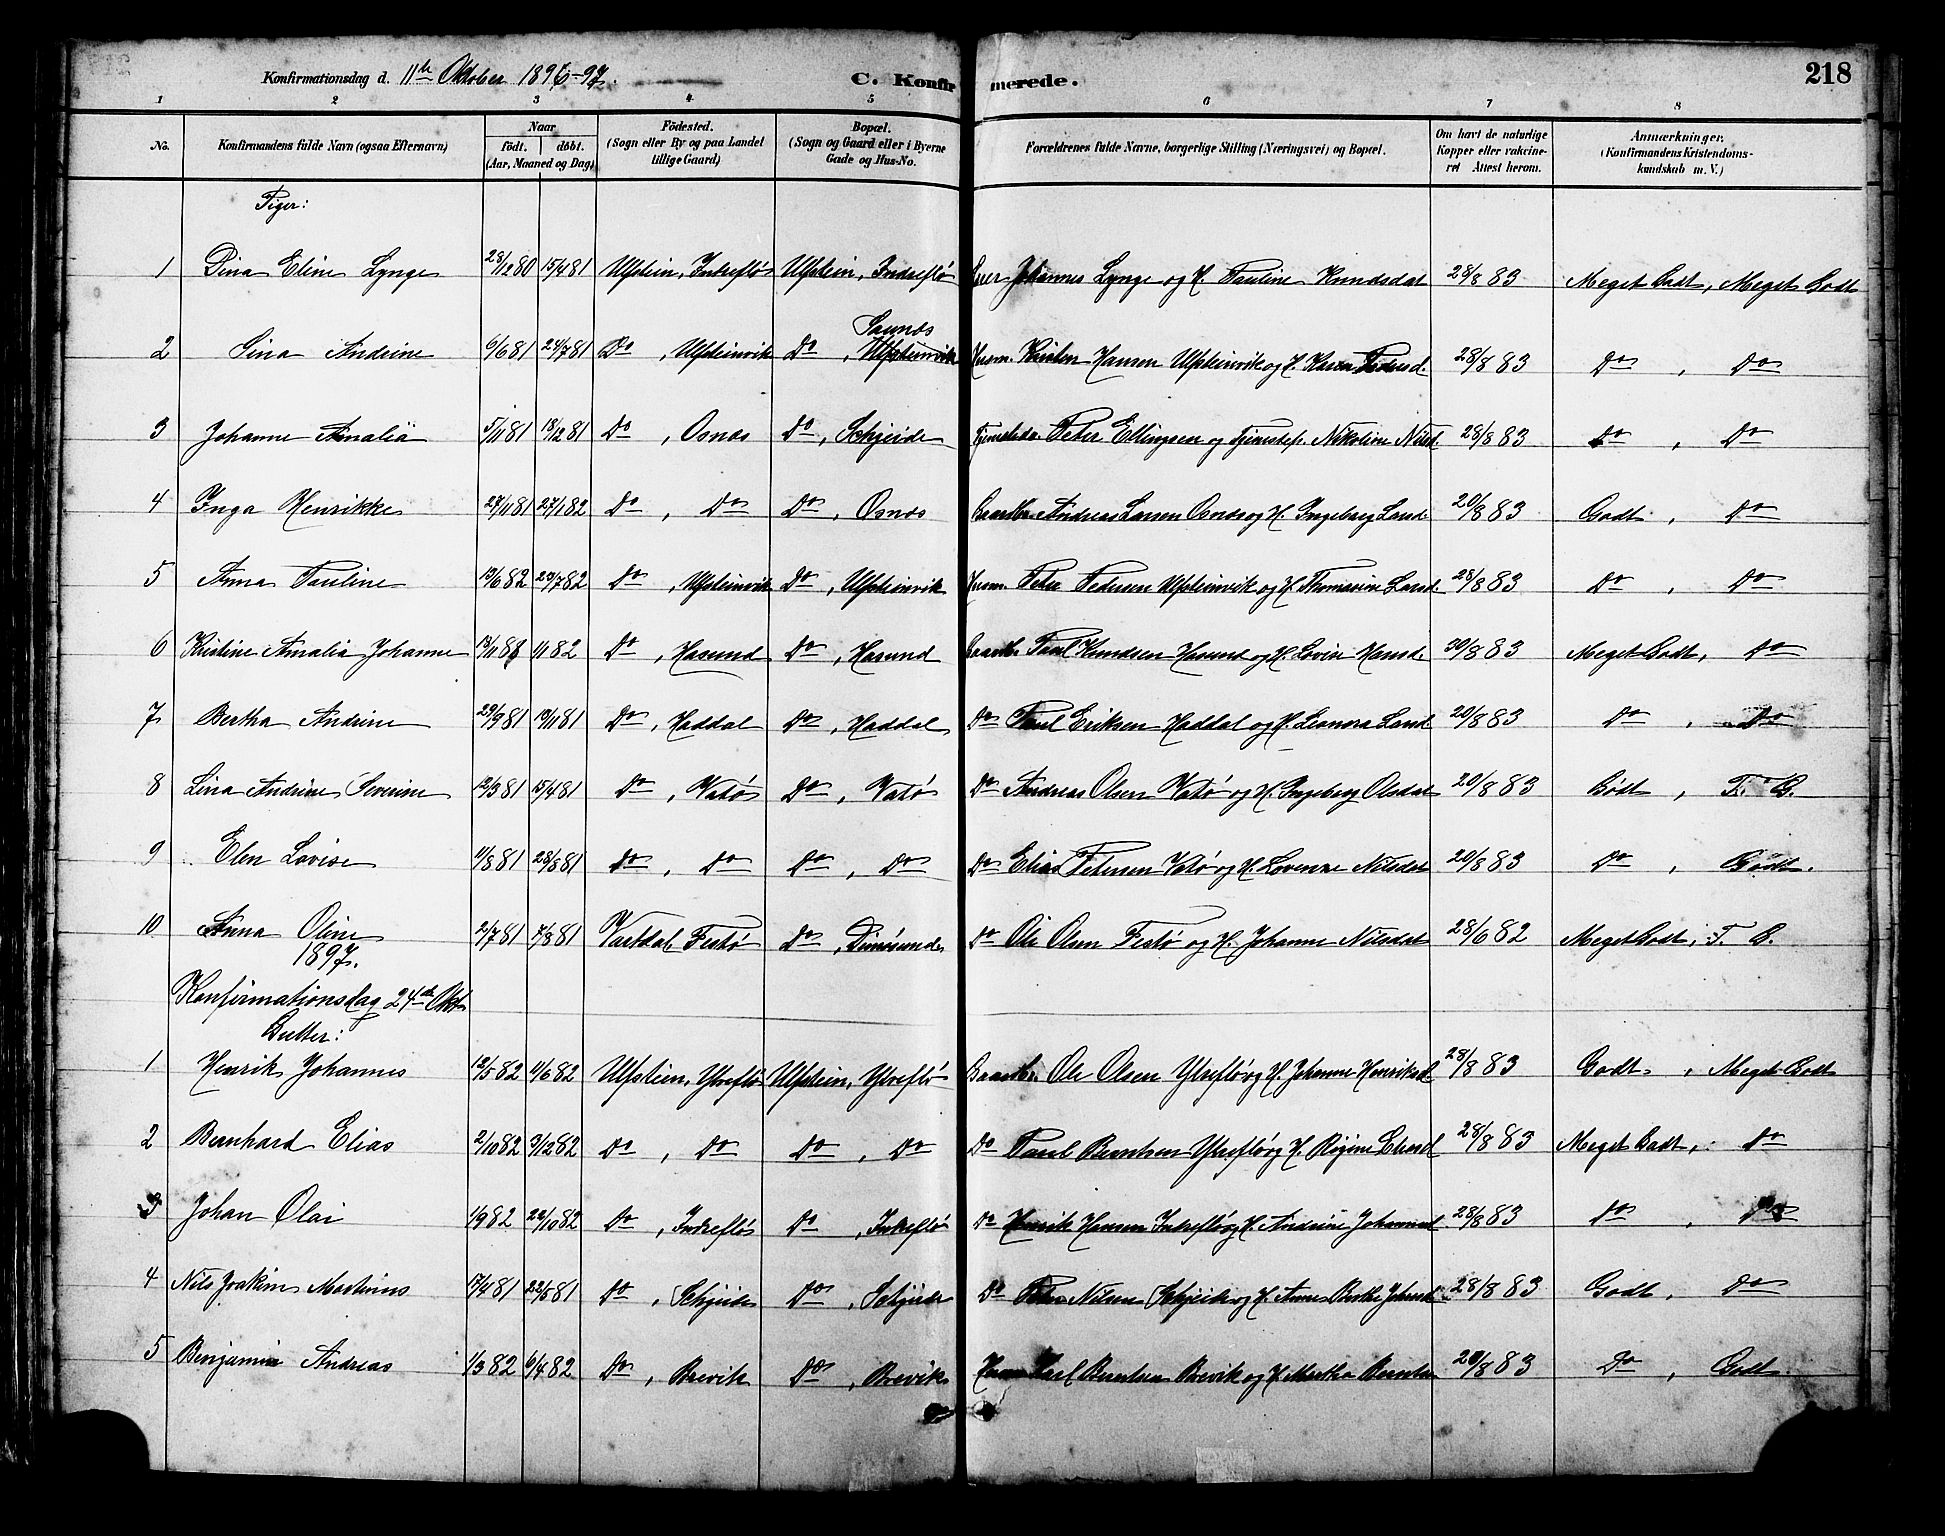 Konfirmationsdag d. 11te Oktober 1896-97. C. Konfirmerede. 218
1 2 3 4 5 6 7 8
No. Konfirmandens fulde Navn (ogsaa Efternavn) Naar födt. döbt. (Aar, Maaned og Dag) Födested. (Sogn eller By og paa Landet tillige Gaard) Bopæl. (Sogn og Gaard eller i Byerne Gade og Hus-No. Forældrenes fulde Navne, borgerlige Stilling (Næringsvei) og Bopæl. Om havt de naturlige Kopper eller vakcineret Attest herom. Anmærkninger. (Konfirmandens Kristendomskundskab m. V.)
Piger:
1 Dina Eline Lynge 23/12 80 15/4 81 Ulfstein, Indreflø Ulfstein, Indreflø Johannes Lynge og H. Pauline Knudsdat 28/8 83 Meget Godt, Meget Godt
2 Sina Andrine 6/6 81 24/7 81 Do, Ulfsteinvik Do, Saunes Ulfsteinvik Husm. Kristen Hansen Ulfsteinvik og H. Karen Pedersd. 28/8 83 Do, Do
3 Johanne Amalia 5/11 81 18/12 81 Do, Osnes Do, Schjeide Peter Ellingsen og Nikoline Nilsd. 28/8 83 Do, Do
4 Inga Henrikke 27/11 81 27/1 82 Do, Do Do, Osnes Gaardbr. Andreas Larsen Osnes og H. Ingeborg Larsd 20/8 83 Godt, Do
5 Anna Pauline 13/6 82 20/7 82 Do, Ulfsteinvik Do, Ulfsteinvik Husm. Peter Pedersen Ulfsteinvik og H. Thomasine Larsd. 28/8 83 Do, Do
6 Kristine Amalia Johanne 1/1 82 Do, Hasund Do, Hasund Gaardbr. Paul Knudsen Hasund og H. Lovise Hansd. 30/8 83 Meget Godt, Do
7 Bertha Andrine 29/9 81 13/11 81 Do, Haddal Do, Haddal Do Paul Eriksen Haddal og H. Leonora Larsd. 20/8 83 Do, Do
8 Lina Andrine Severine 12/3 81 15/4 81 Do, Vatø Do, Vatø Do Andreas Olsen Vatø og H. Ingeborg Olsdat 20/8 83 Godt, T. G.
9 Elen Lovise 11/8 81 28/8 81 Do, Do Do, Do Do Elias Petersen Vatø og H. Lovense Nilsdat 20/8 83 Do, Godt.
10 Anna Oline 2/7 81 7/8 81 Vartdal Festø Do, Dimøsund Do Ole Olsen Festø og H. Johanne Nilsdat 28/6 82 Meget Godt, T. G.
1897.
Konfirmationsdag 24de Okt.
Gutter:
1 Henrik Johannes 12/5 82 11/6 82 Ulfstein, Ytreflø Ulfstein, Ytreflø Gaardbr. Ole Olsen Ytreflø og H. Johanne Henriksd. 28/8 83 Godt, Meget Godt
2 Bernhard Elias 2/10 82 3/12 82 Do, Do Do, Do Do Paul Berntsen Ytreflø og H. Regine 28/8 83 Meget Godt, Do
3 Johan Olai 1/9 82 22/10 82 Do, Indreflø Do, Indreflø Do Henrik Hansen Indreflø og H. Andrine Johannesd 28/8 83 Do, Do
4 Nils Joakim Martinus 17/4 81 22/5 81 Do, Schjeide Do, Schjeide Do Peter Nilsen Schjeide og H. Anne Berthe 28/8 83 Godt, Do
5 Benjamin Andreas 1/3 82 6/4 82 Do, Brevik Do, Brevik Husm. Karl Berntsen Brevik og H. Martha 28/8 83 Do, Godt.